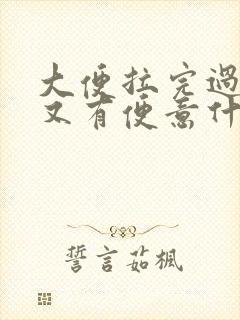 大便拉完過
又有便意什
誓言茹楓